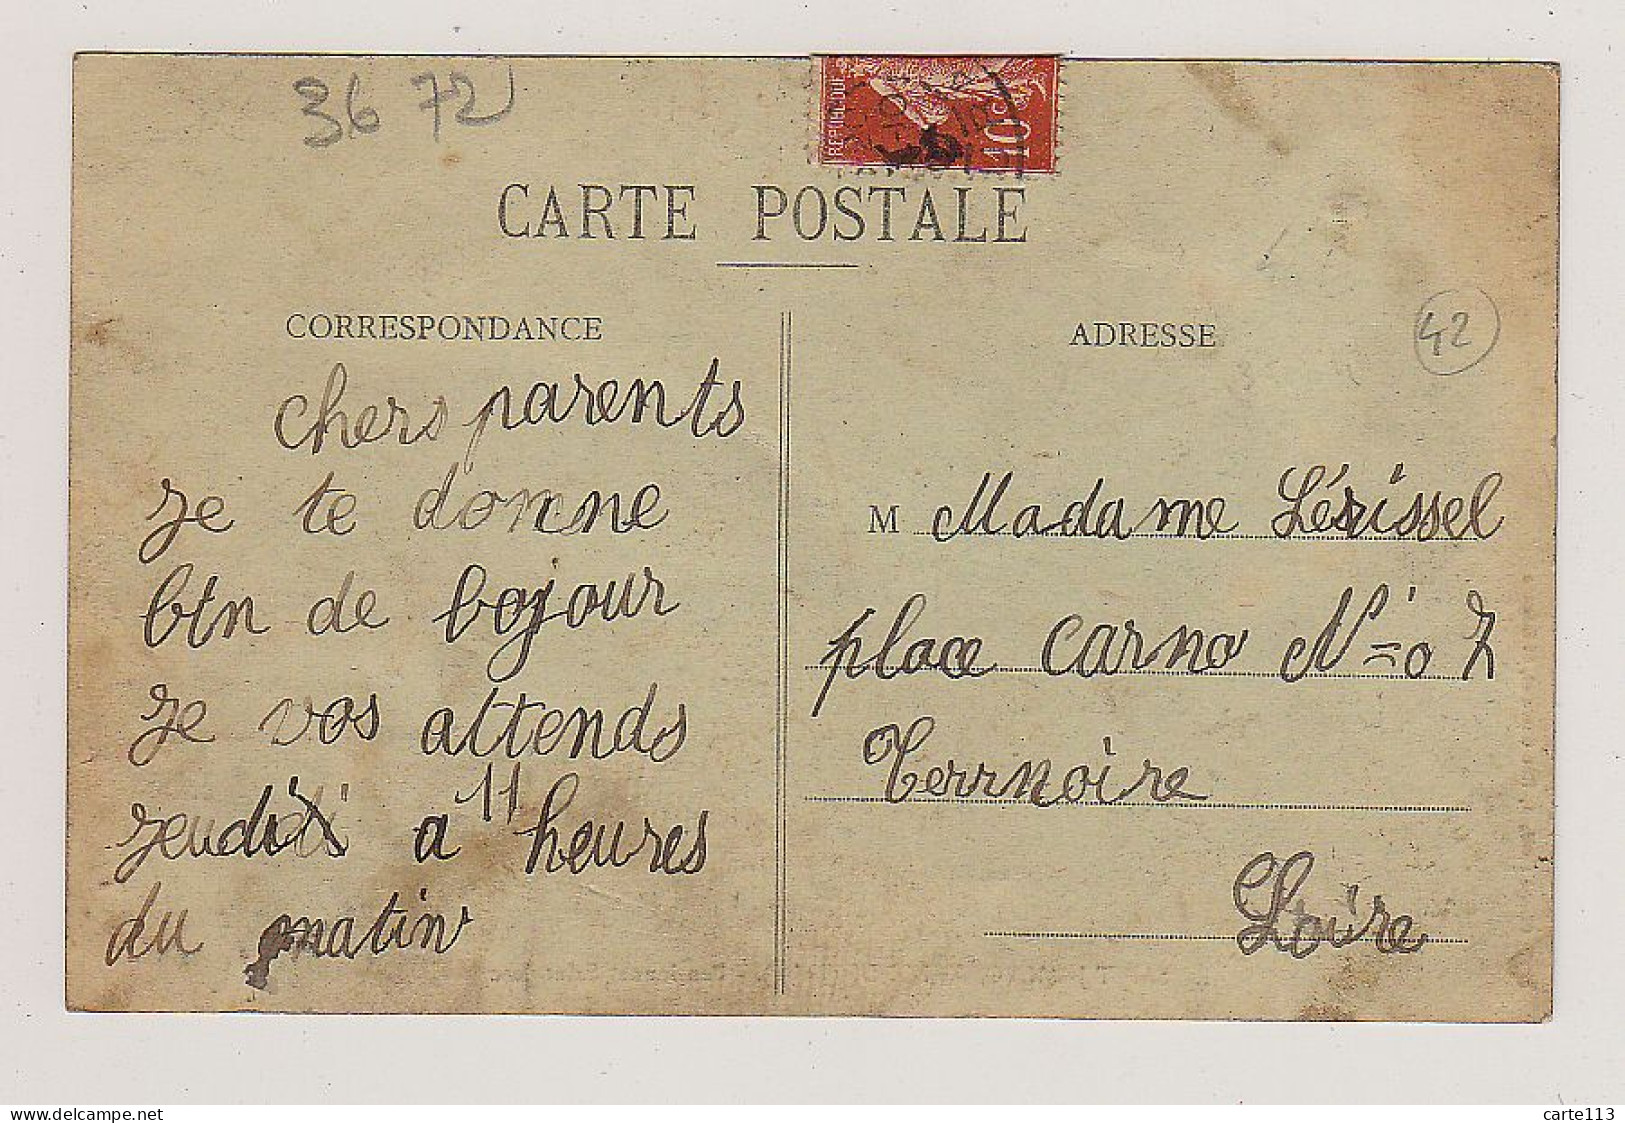 36 72
REPUBLIQUE
10c
CARTE POSTALE
CORRESPONDANCE
ADRESSE
42
chers parents
je te donne
bin de bojour
je vos attends
jeudi a 11 heures
du matin
M Madame Lérissel
place Carno N=o 7
Terrnoire
Loire
www.delcampe.net
carte113